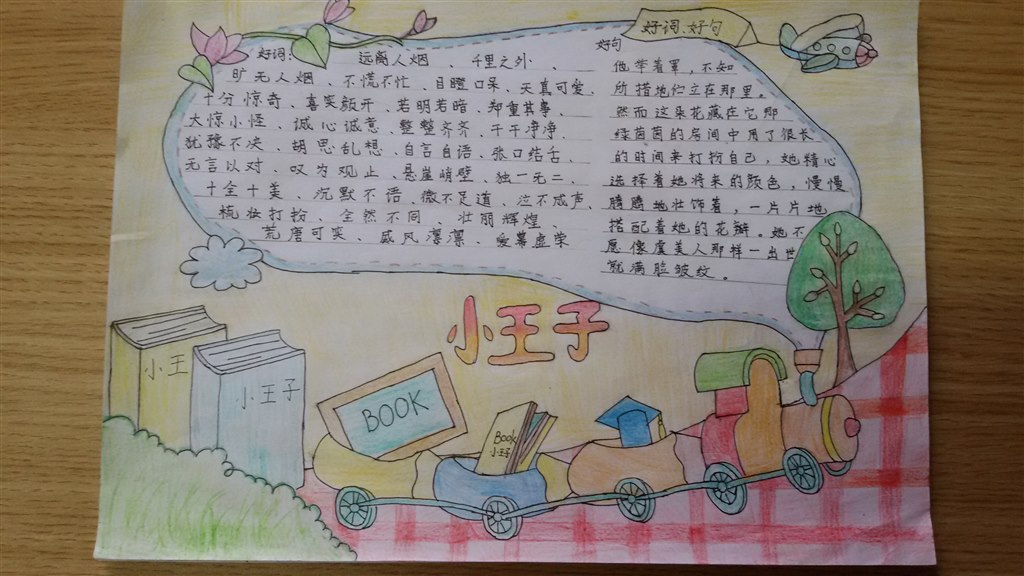 好词、好句
好词：
远离人烟、千里之外、
旷无人烟、不慌不忙、目瞪口呆、天真可爱、
十分惊奇、喜笑颜开、若明若暗、郑重其事、
大惊小怪、诚心诚意、整整齐齐、干干净净、
犹豫不决、胡思乱想、自言自语、张口结舌、
无言以对、叹为观止、悬崖峭壁、独一无二、
十全十美、沉默不语、微不足道、泣不成声、
梳妆打扮、全然不同、壮丽辉煌、
荒唐可笑、威风凛凛、爱慕虚荣
好句
他举着罩，不知
所措地伫立在那里。
然而这朵花藏在它那
绿茵茵的房间中用了很长
的时间来打扮自己，她精心
选择着她将来的颜色，慢慢
腾腾地妆饰着，一片片地
搭配着她的花瓣。她不
愿像虞美人那样一出世
就满脸皱纹。
小王子
小王
小王子
BOOK
BOOK
小王子